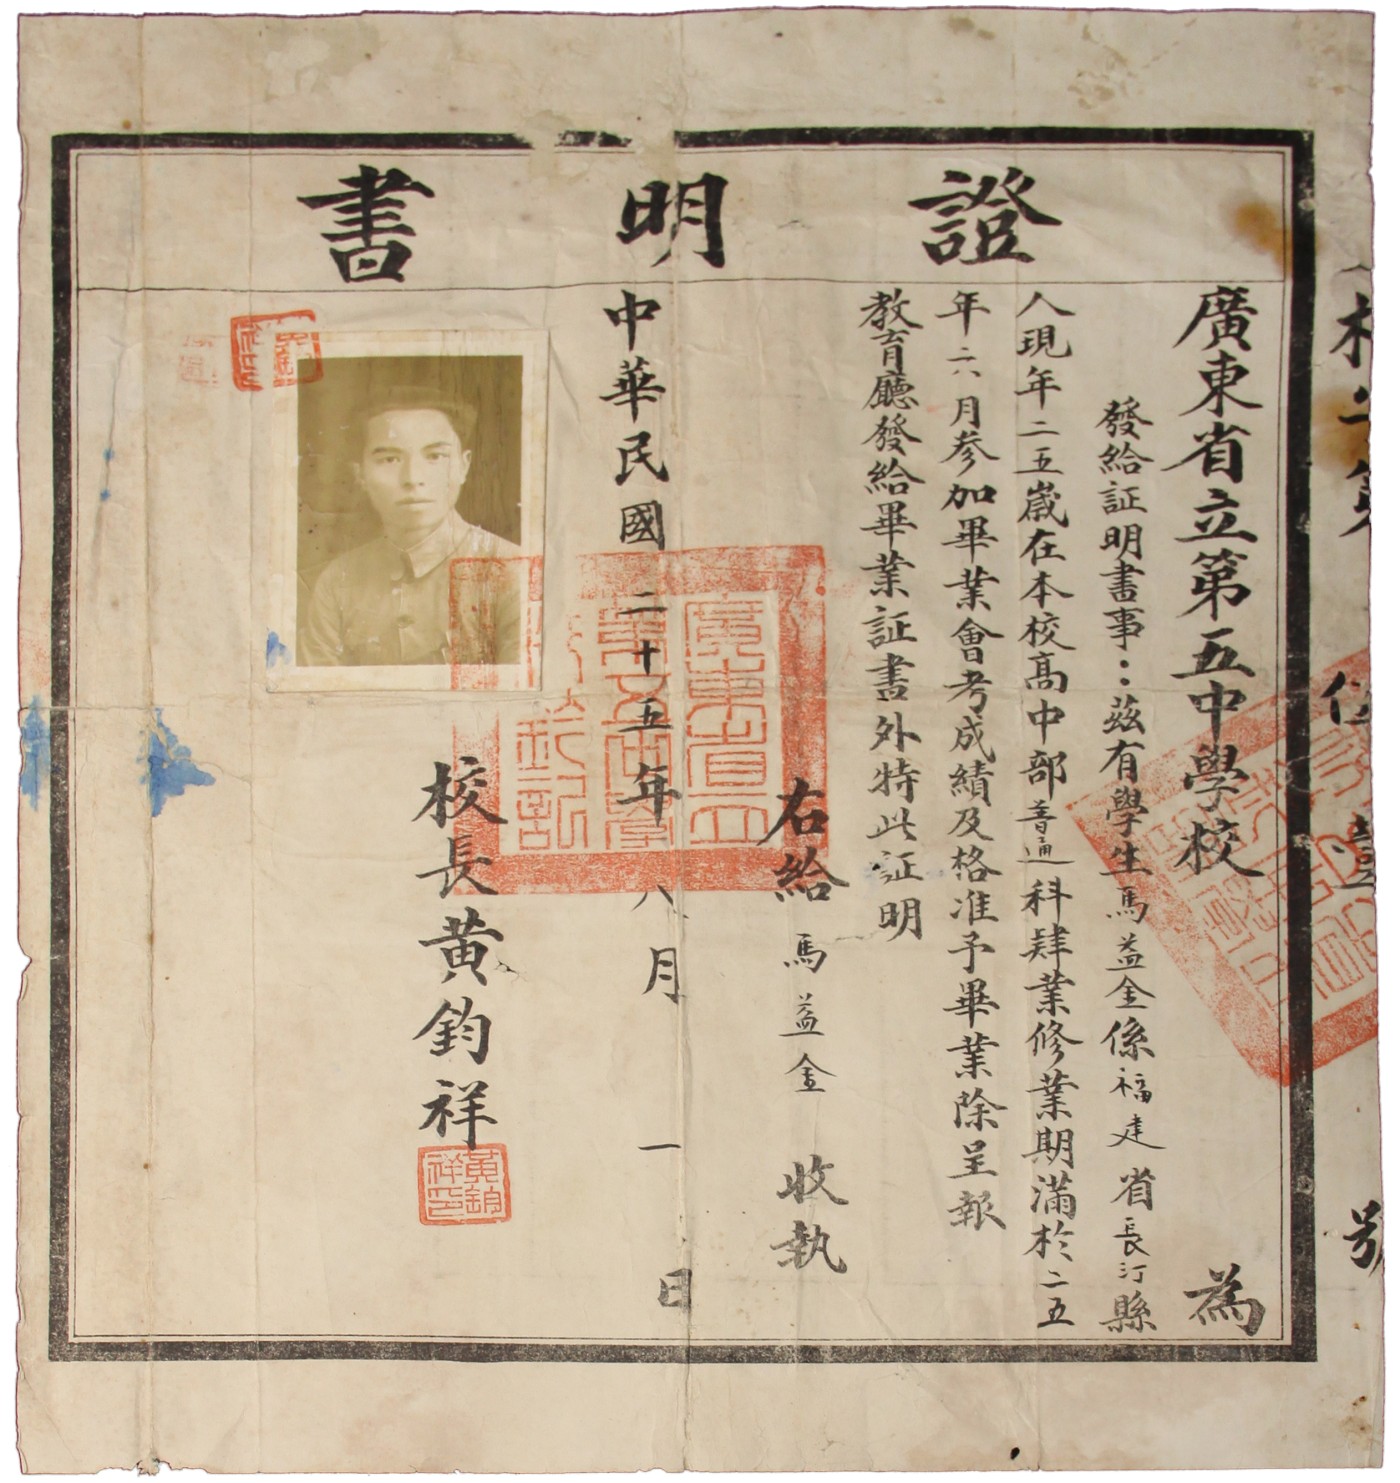 證明書
廣東省立第五中學校 為
發給証明書事：茲有學生馬益金係福建省長汀縣
人現年二五歲在本校高中部普通科肄業修業期滿於二五
年六月参加畢業會考成績及格准予畢業除呈報
教育廳發給畢業証書外特此証明
右給 馬益金 收執
中華民國二十五年八月一日
校長黃鈞祥